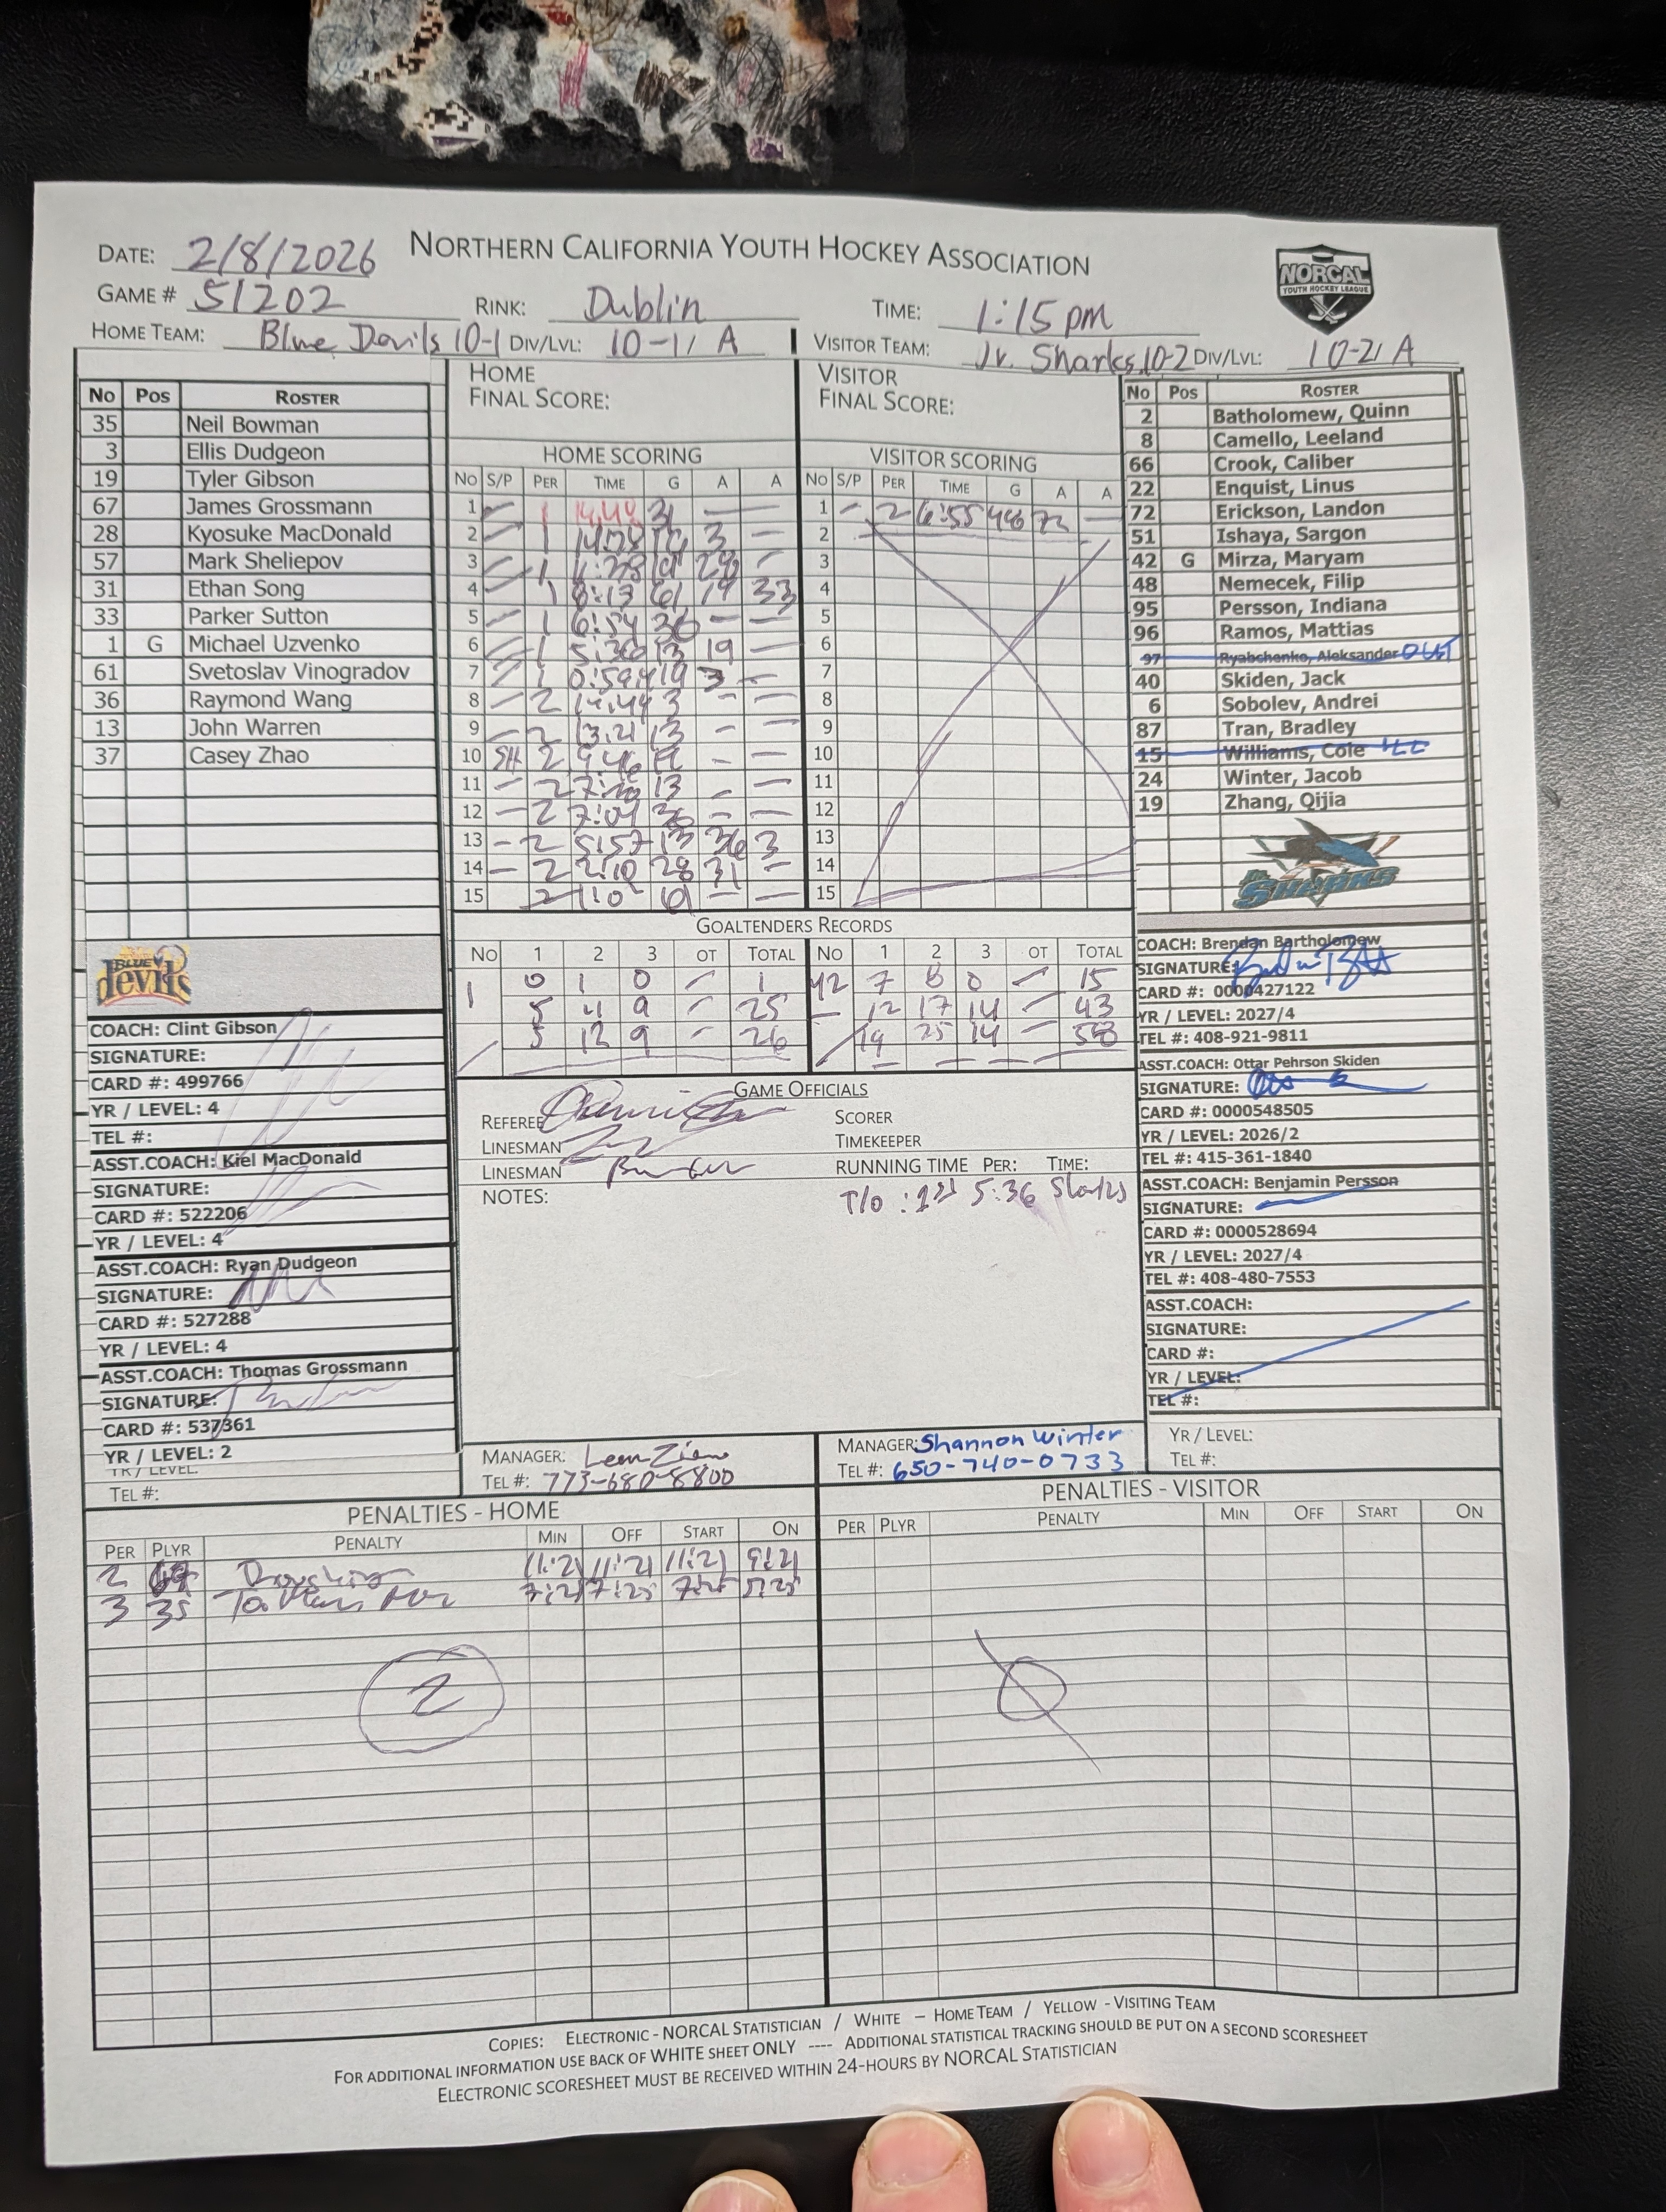 NORTHERN CALIFORNIA YOUTH HOCKEY ASSOCIATION
NORCAL
YOUTH HOCKEY LEAGUE
DATE: 2/8/2026
GAME # 51202
RINK: Dublin
TIME: 1:15 pm
HOME TEAM: Blue Devils 10-1 DIV/LVL: 10-1/ A
VISITOR TEAM: Jr. Sharks 10-2 DIV/LVL: 10-2/ A
No Pos ROSTER
35 Neil Bowman
3 Ellis Dudgeon
19 Tyler Gibson
67 James Grossmann
28 Kyosuke MacDonald
57 Mark Sheliepov
31 Ethan Song
33 Parker Sutton
1 G Michael Uzvenko
61 Svetoslav Vinogradov
36 Raymond Wang
13 John Warren
37 Casey Zhao
BLUE devils
COACH: Clint Gibson
SIGNATURE:
CARD #: 499766
YR / LEVEL: 4
TEL #:
ASST.COACH: Kiel MacDonald
SIGNATURE:
CARD #: 522206
YR / LEVEL: 4
ASST.COACH: Ryan Dudgeon
SIGNATURE:
CARD #: 527288
YR / LEVEL: 4
ASST.COACH: Thomas Grossmann
SIGNATURE:
CARD #: 537361
YR / LEVEL: 2
YR / LEVEL:
TEL #:
HOME
FINAL SCORE:
HOME SCORING
NO S/P PER TIME G A A
1 – 1 14:48 31 — —
2 – 1 19 3 –
3 – 1 19 28 –
4 – 1 8:13 61 19 33
5 – 1 6:54 36 – –
6 – 1 5:36 13 19 –
7 – 1 19 3 –
8 – 2 14:44 3 – –
9 – 2 13:21 13 – –
10 SH 2 9:46 – –
11 – 2 13 – –
12 – 2 7:04 36 – –
13 – 2 5:57 13 36 3
14 – 2 2:10 28 31 –
15 2 61 – –
VISITOR
FINAL SCORE:
VISITOR SCORING
NO S/P PER TIME G A A
1 – 2 6:55 72 –
2
3
4
5
6
7
8
9
10
11
12
13
14
15
GOALTENDERS RECORDS
NO 1 2 3 OT TOTAL NO 1 2 3 OT TOTAL
1 0 1 0 – 1 42 7 8 0 – 15
5 11 9 – 25 12 17 14 – 43
5 12 9 – 26 19 25 14 – 58
GAME OFFICIALS
REFEREE
LINESMAN
LINESMAN
SCORER
TIMEKEEPER
RUNNING TIME PER: TIME:
NOTES:
T/O : 1st 5:36 Sharks
MANAGER:
TEL #: 773-680-8800
MANAGER: Shannon Winter
TEL #: 650-740-0733
No Pos ROSTER
2 Batholomew, Quinn
8 Camello, Leeland
66 Crook, Caliber
22 Enquist, Linus
72 Erickson, Landon
51 Ishaya, Sargon
42 G Mirza, Maryam
48 Nemecek, Filip
95 Persson, Indiana
96 Ramos, Mattias
97 Ryabchenko, Aleksander OUT
40 Skiden, Jack
6 Sobolev, Andrei
87 Tran, Bradley
15 Williams, Cole
24 Winter, Jacob
19 Zhang, Qijia
JR. SHARKS
COACH: Brendan Bartholomew
SIGNATURE:
CARD #: 0000427122
YR / LEVEL: 2027/4
TEL #: 408-921-9811
ASST.COACH: Ottar Pehrson Skiden
SIGNATURE:
CARD #: 0000548505
YR / LEVEL: 2026/2
TEL #: 415-361-1840
ASST.COACH: Benjamin Persson
SIGNATURE:
CARD #: 0000528694
YR / LEVEL: 2027/4
TEL #: 408-480-7553
ASST.COACH:
SIGNATURE:
CARD #:
YR / LEVEL:
TEL #:
YR / LEVEL:
TEL #:
PENALTIES - HOME
PER PLYR PENALTY MIN OFF START ON
2 11:21 11:21 11:21 9:21
3 35 7:25 7:25 5:25
2
PENALTIES - VISITOR
PER PLYR PENALTY MIN OFF START ON
0
COPIES: ELECTRONIC - NORCAL STATISTICIAN / WHITE – HOME TEAM / YELLOW - VISITING TEAM
FOR ADDITIONAL INFORMATION USE BACK OF WHITE SHEET ONLY ---- ADDITIONAL STATISTICAL TRACKING SHOULD BE PUT ON A SECOND SCORESHEET
ELECTRONIC SCORESHEET MUST BE RECEIVED WITHIN 24-HOURS BY NORCAL STATISTICIAN